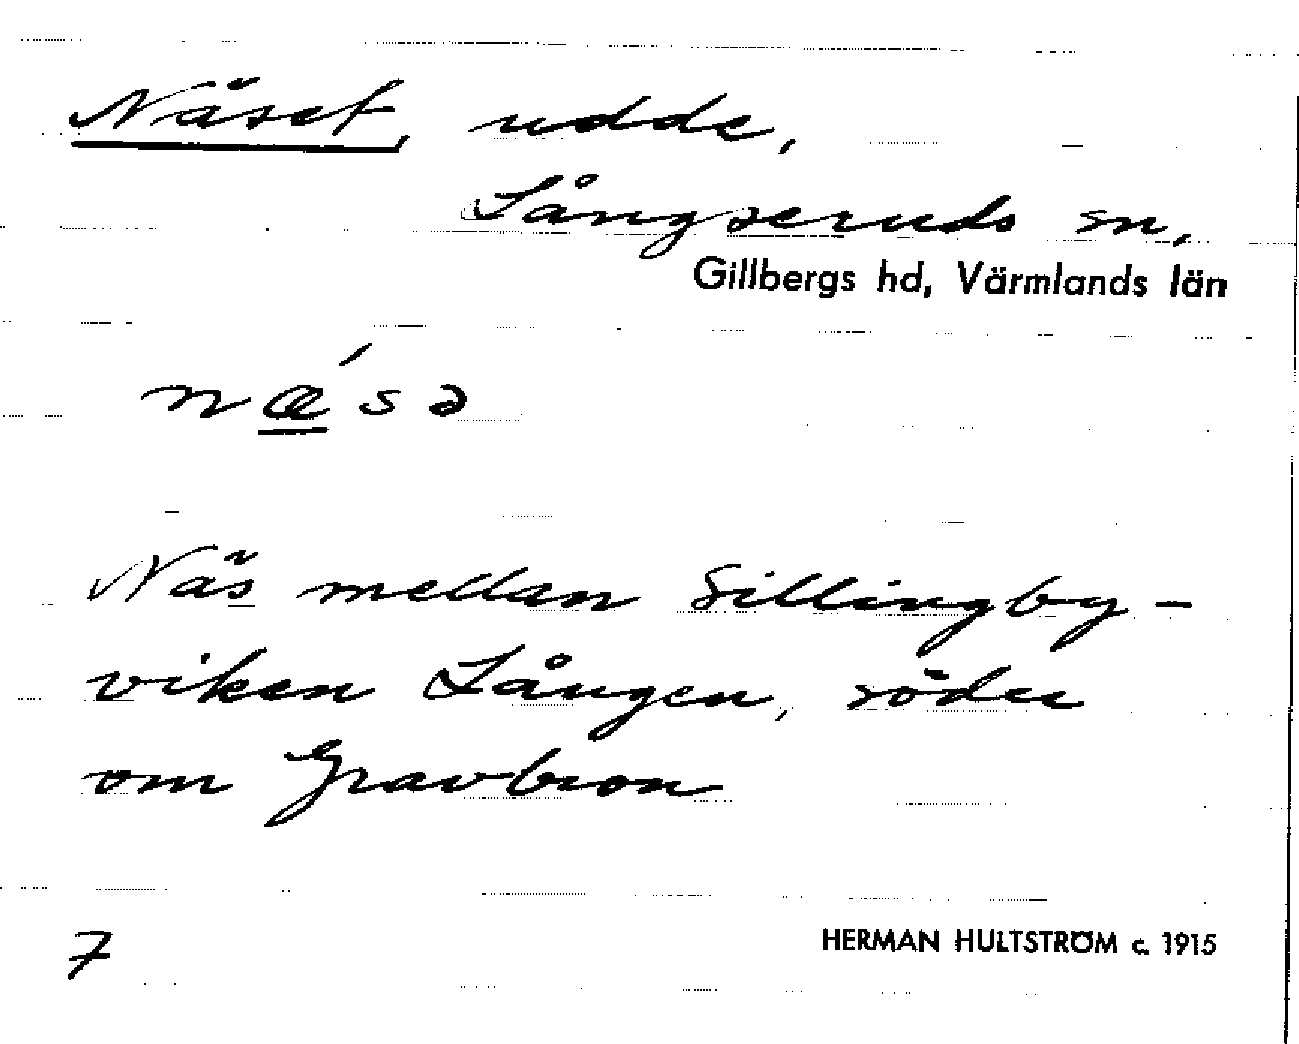 Näset, udde,
Långseruds sn,
Gillbergs hd, Värmlands län
næ´sə
Näs mellan Sillingby-
viken Lången, söder
om Gravbron
7
HERMAN HULTSTRÖM c. 1915